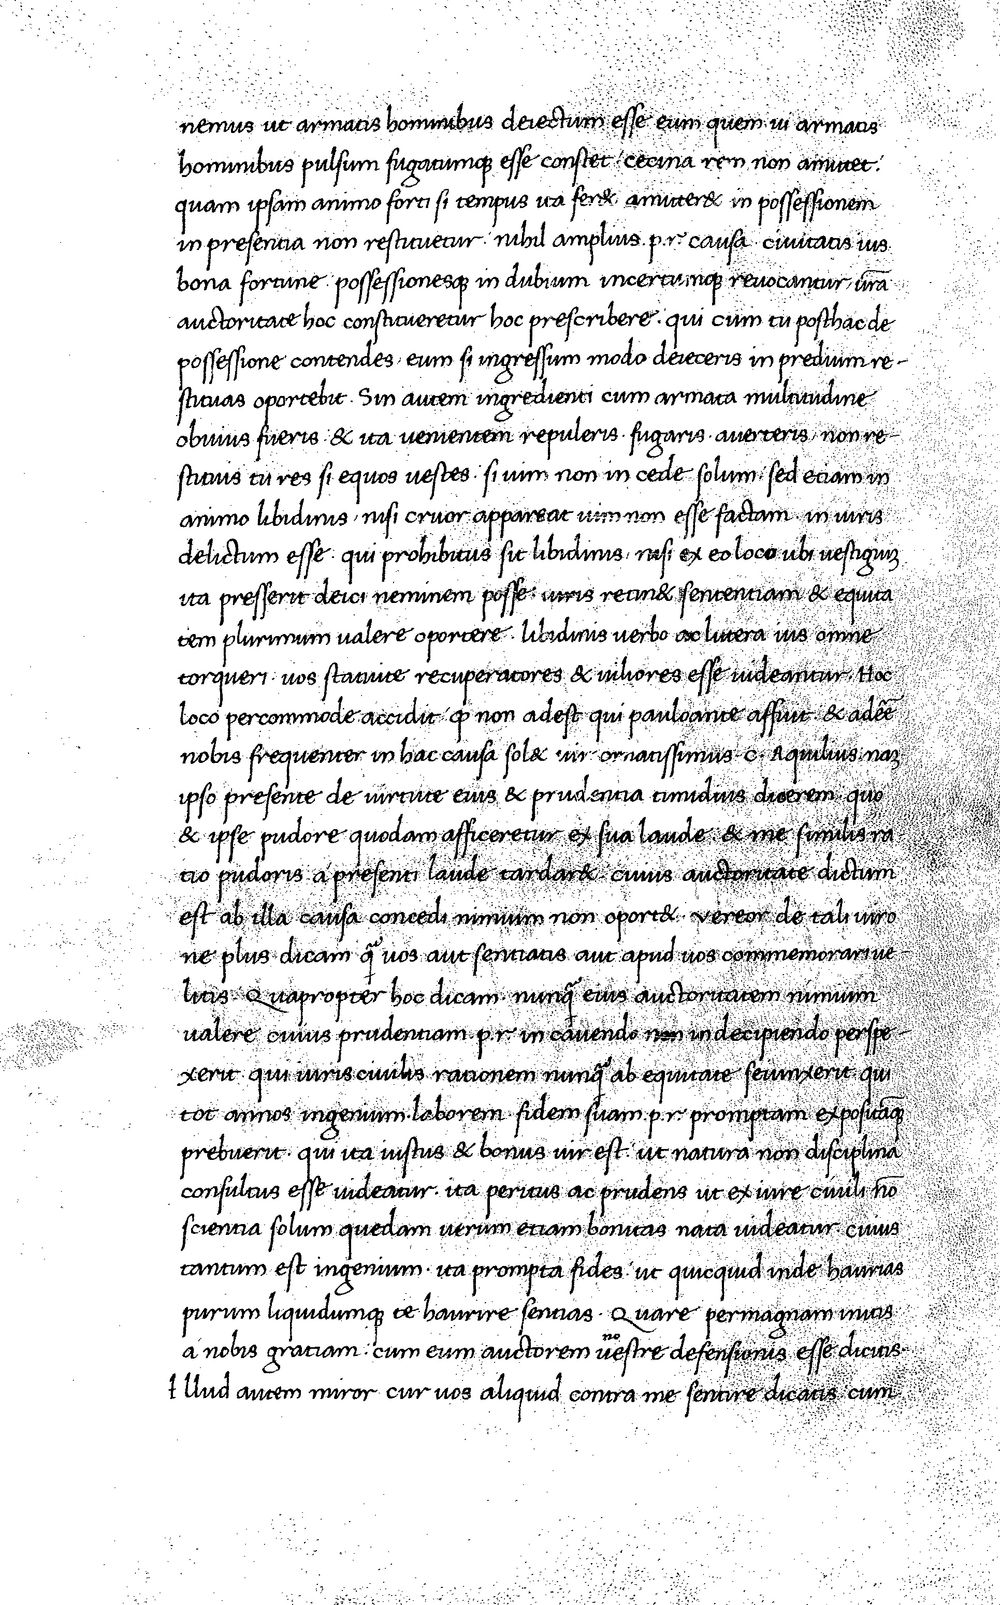 nemus ut armatis hominibus deiectum esse eum quem ui armatis
hominibus pulsum fugatumqꝫ esse constet. cecina rem non amittet.
quam ipsam animo forti si tempus ita fer& amitter& in possessionem
in presentia non restituetur. nihil amplius. p.r. causa ciuitatis ius
bona fortune possessionesqꝫ in dubium incertumqꝫ reuocantur. ūrā
auctoritate hoc constitueretur hoc prescribere. qui cum tu posthac de
possessione contendes. eum si ingressum modo deieceris in predium re-
stituas oportebit. Sin autem ingredienti cum armata multitudine
obuius fueris & ita uenientem repuleris. fugaris. auerteris, non re-
stituis tu res si equos uestes. si uim non in cede solum, sed etiam in
animo libidinis, nisi cruor appareat uim non esse factam in iuris
delictum esse. qui prohibitus sit libidinis, nisi ex eo loco ubi uestigiuꝫ
ita presserit deici neminem posse. iuris retin& sententiam & equita
tem plurimum ualere oportere. libidinis uerbo ac littera ius omne
torqueri. uos statuite recuperatores & utiliores esse uideantur. Hoc
loco percommode accidit ꝙ non adest qui pauloante affuit & adēē
nobis frequenter in hac causa sol& uir ornatissimus. C. Aquilius. naꝫ
ipso presente de uirtute eius & prudentia timidius dicerem quo
& ipse pudore quodam afficeretur ex sua laude & me similis ra
tio pudoris a presenti laude tardar&. cuius auctoritate dictum
est ab illa causa concedi nimium non oport&. vereor de tali uiro
ne plus dicam q̄ uos aut sentiatis aut apud uos commemorari ue-
litis. Quapropter hoc dicam. nunq̄ eius auctoritatem nimium
ualere cuius prudentiam. p.r. in cauendo non in decipiendo perspe-
xerit. qui iuris ciuilis rationem nunq̄ ab equitate seiunxerit qui
tot annos ingenium. laborem. fidem suam. p.r. promptam expositāqꝫ
prebuerit. qui ita iustus & bonus uir est. ut natura non disciplina
consultus esse uideatur. ita peritus ac prudens ut ex iure ciuili nō
scientia solum quedam uerum etiam bonitas nata uideatur. cuius
tantum est ingenium. ita prompta fides ut quicquid inde haurias
purum liquidumqꝫ te haurire sentias. Quare permagnam initis
a nobis gratiam. cum eum auctorem ūestre defensionis esse dicitis.
Illud autem miror cur uos aliquid contra me sentire dicatis cum